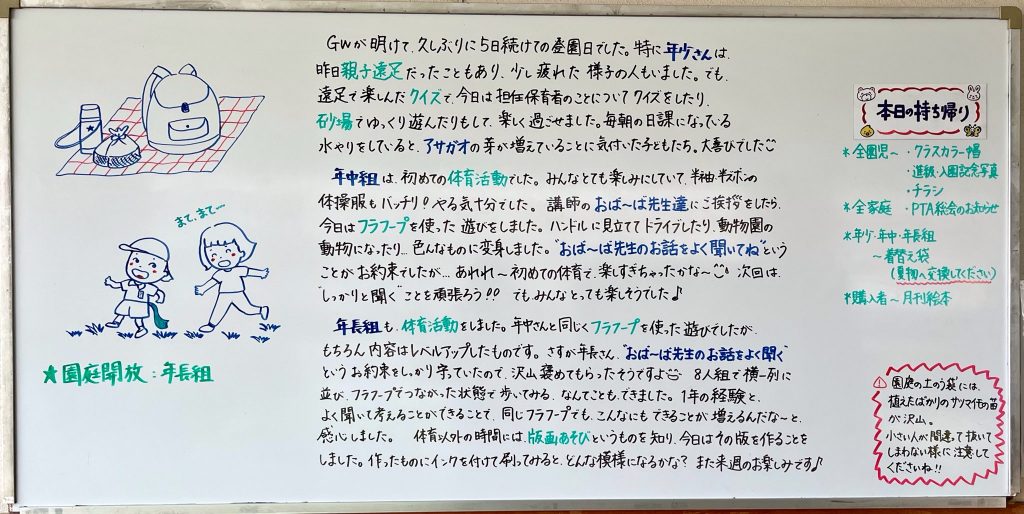 まて、まて…
★園庭開放：年長組
GWが明けて、久しぶりに5日続けての登園日でした。特に年少さんは、
昨日親子遠足だったこともあり、少し疲れた様子の人もいました。でも、
遠足で楽しんだクイズで、今日は担任保育者のことについてクイズをしたり、
砂場でゆっくり遊んだりもして、楽しく過ごせました。毎朝の日課になっている
水やりをしていると、アサガオの芽が増えていることに気付いた子どもたち。大喜びでした
年中組は、初めての体育活動でした。みんなとても楽しみにしていて、半袖・半ズボンの
体操服もバッチリ！やる気十分でした。講師のおば〜ば先生達にご挨拶をしたら、
今日はフラフープを使った遊びをしました。ハンドルに見立ててドライブしたり、動物園の
動物になったり…色んなものに変身しました。"おば〜ば先生のお話をよく聞いてね"という
ことがお約束でしたが…あれれ〜初めての体育で、楽しすぎちゃったかな〜 次回は、
"しっかりと聞く"ことを頑張ろう!! でもみんなとっても楽しそうでした♪
年長組も、体育活動をしました。年中さんと同じくフラフープを使った遊びでしたが、
もちろん内容はレベルアップしたものです。さすが年長さん、"おば〜ば先生のお話をよく聞く"
というお約束をしっかり守っていたので、沢山褒めてもらったそうですよ 8人組で横一列に
並び、フラフープでつながった状態で歩いてみる、なんてこともできました。1年の経験と、
よく聞いて考えることができることで、同じフラフープでも、こんなにもできることが増えるんだな〜と、
感心しました。 体育以外の時間には、版画あそびというものを知り、今日はその版を作ることを
しました。作ったものにインクを付けて刷ってみると、どんな模様になるかな？また来週のお楽しみです♪
本日の持ち帰り
*全園児〜・クラスカラー帽
・進級・入園記念写真
・チラシ
*全家庭・PTA総会のお知らせ
*年少・年中・年長組
〜着替え袋
(夏物へ交換してください)
*購入者〜月刊絵本
! 園庭の土のう袋には、
植えたばかりのサツマイモの苗
が沢山。
小さい人が間違って抜いて
しまわない様に注意して
くださいね!!